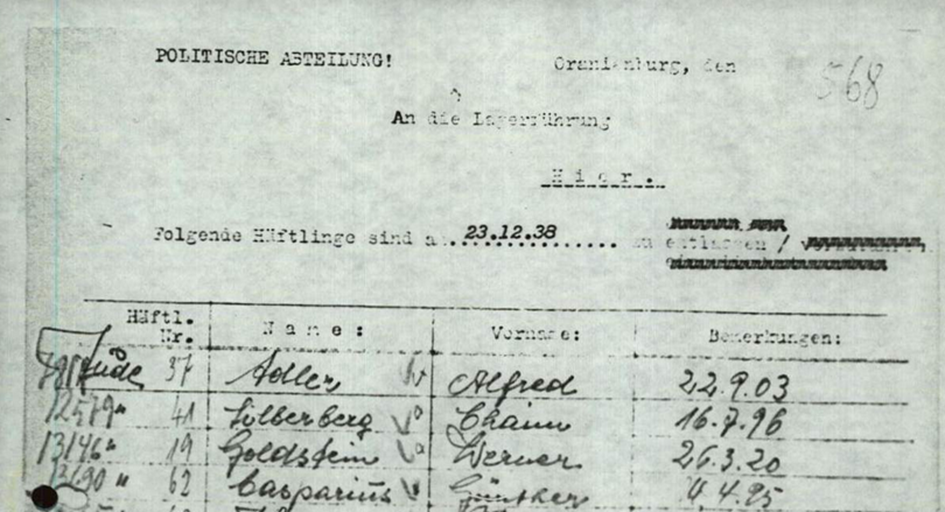 POLITISCHE ABTEILUNG! Oranienburg, den 568
An die Lagerführung
Hier.
Folgende Häftlinge sind am 23.12.38 zu entlassen /
Häftl. Nr. Name: Vorname: Bemerkungen:
Jude 37 Adler Alfred 22.9.03
12579 " 41 Silberberg Chaim 16.7.96
13146 " 19 Goldstein Werner 26.3.20
13690 " 62 Casparius Günther 4.4.95